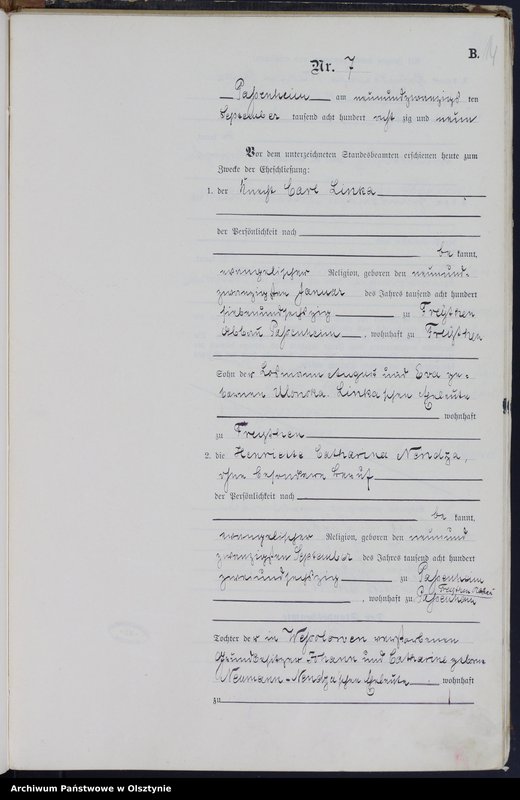 B. 14
Nr. 7
Passenheim am neunundzwanzigs ten
September tausend acht hundert acht zig und neun
Vor dem unterzeichneten Standesbeamten erschienen heute zum
Zwecke der Eheschließung:
1. der Knecht Carl Linka
der Persönlichkeit nach
be kannt,
evangelischer Religion, geboren den neunund-
zwanzigsten Januar des Jahres tausend acht hundert
siebenundsechszig zu
Abbau Passenheim, wohnhaft zu
Sohn der Losmann August und Eva ge-
borenen Linka'schen Eheleute
wohnhaft
zu
2. die Henriette Catharina Nendza,
ohne besonderen Beruf
der Persönlichkeit nach
be kannt,
evangelischer Religion, geboren den neunund
zwanzigsten September des Jahres tausend acht hundert
zweiundsechszig zu Passenheim
, wohnhaft zu Passenheim
Tochter der in verstorbenen
Grundbesitzer Johann und Catharine geborne
Neumann-Nendza'schen Eheleute wohnhaft
zu
Archiwum Państwowe w Olsztynie